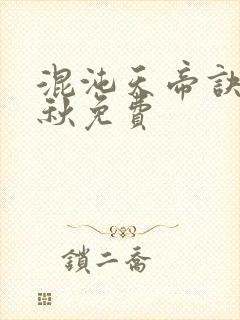 混沌天帝訣
秋免費
鎖二喬